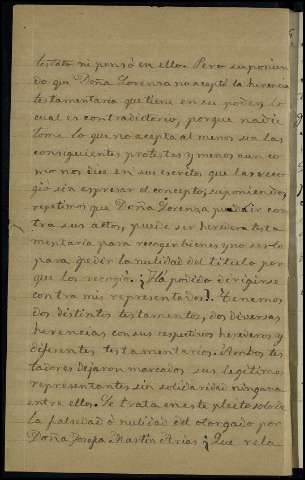 testato ni pensó en ello. Pero suponien
do que Doña Lorenza no aceptó la herencia
testamentaria que tiene en su poder, lo
cual es contradictorio, porque nadie
toma lo que no acepta al menos sin las
consiguientes protestas y menos aun co
mo nos dice en sus escritos que las reco
gió sin espresar el concepto; suponiendo,
repetimos que Doña Lorenza pueda ir con
tra sus actos, puede ser heredera testa
mentaria para recoger bienes y no serlo
para pedir la nulidad del titulo por
que los recogió. ¿Há podido dirigirse
contra mis representados? Tenemos
dos distintos testamentos, dos diversas
herencias con sus respectivos herederos y
diferentes testamentarios. Ambos tes
tadores dejaron marcados sus legitimos
representantes sin solidaridad ninguna
entre ellos. Se trata en este pleito solo de
la falsedad ó nulidad del otorgado por
Doña Josefa Martin Arias; ¿Que rela